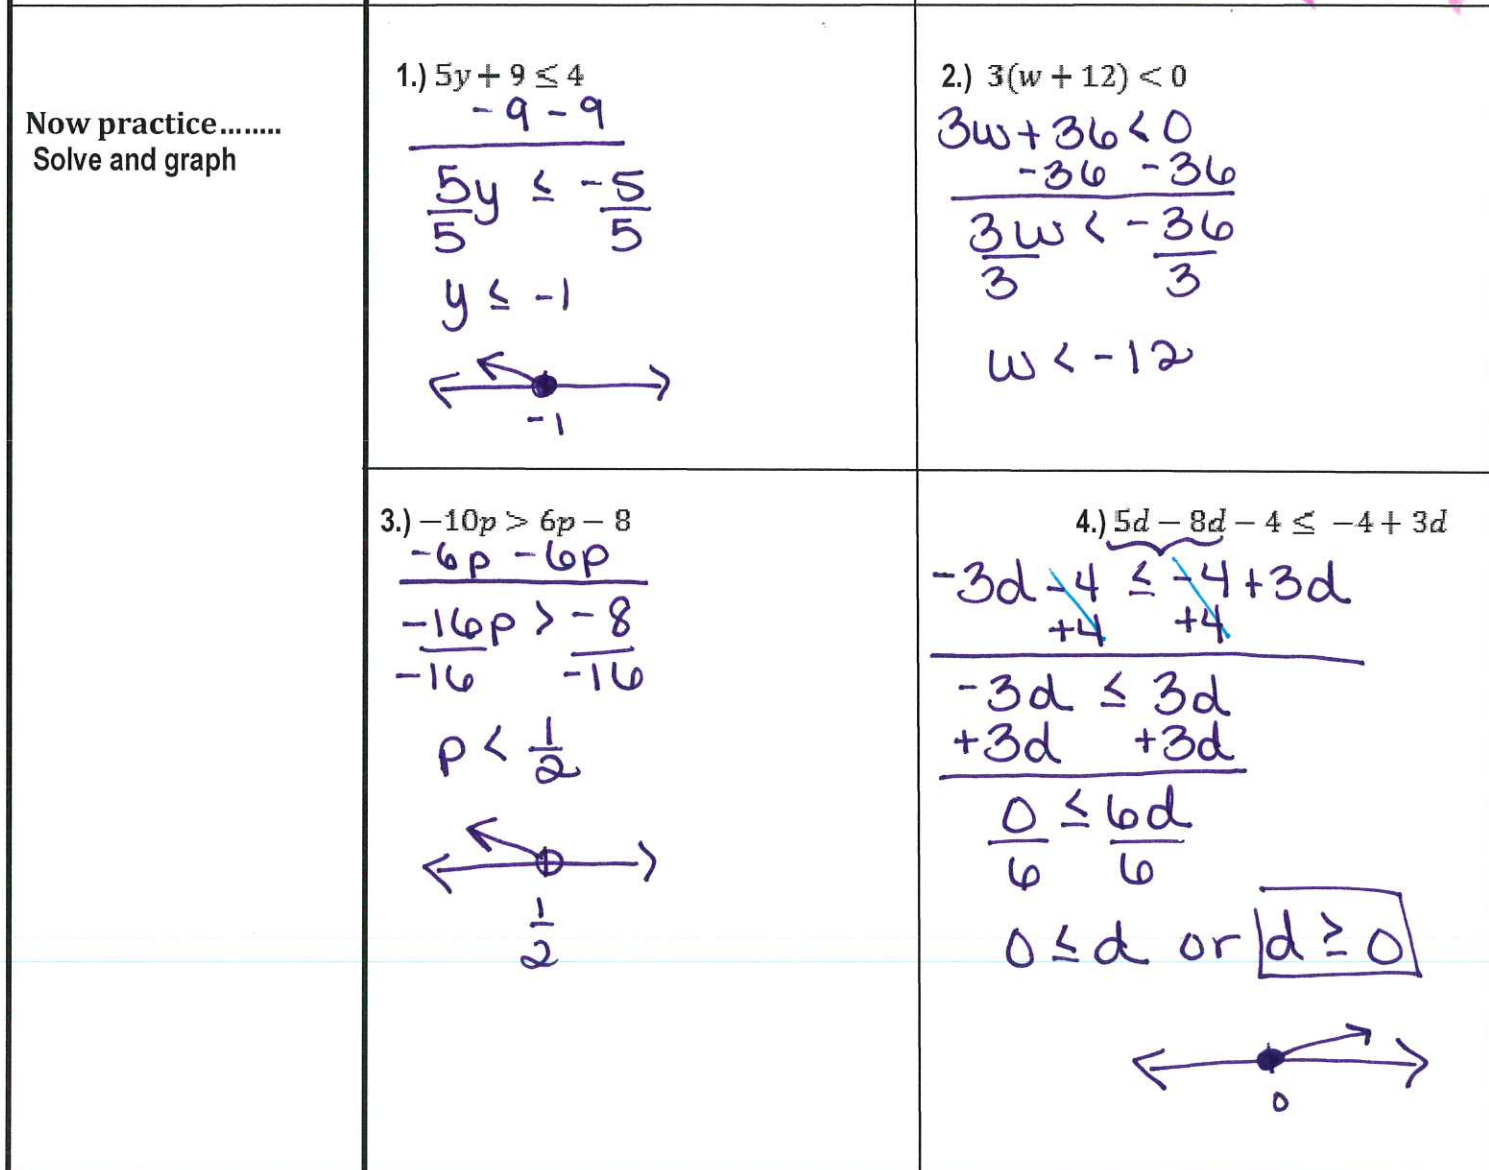 Now practice........
Solve and graph
1.) 5y + 9 ≤ 4
-9 -9
5y ≤ -5
5 5
y ≤ -1
-1
2.) 3(w + 12) < 0
3w + 36 < 0
-36 -36
3w < -36
3 3
w < -12
3.) −10p > 6p − 8
-6p -6p
-16p > -8
-16 -16
p < 1/2
1/2
4.) 5d − 8d − 4 ≤ −4 + 3d
-3d -4 ≤ -4 + 3d
+4 +4
-3d ≤ 3d
+3d +3d
0 ≤ 6d
6 6
0 ≤ d or d ≥ 0
0